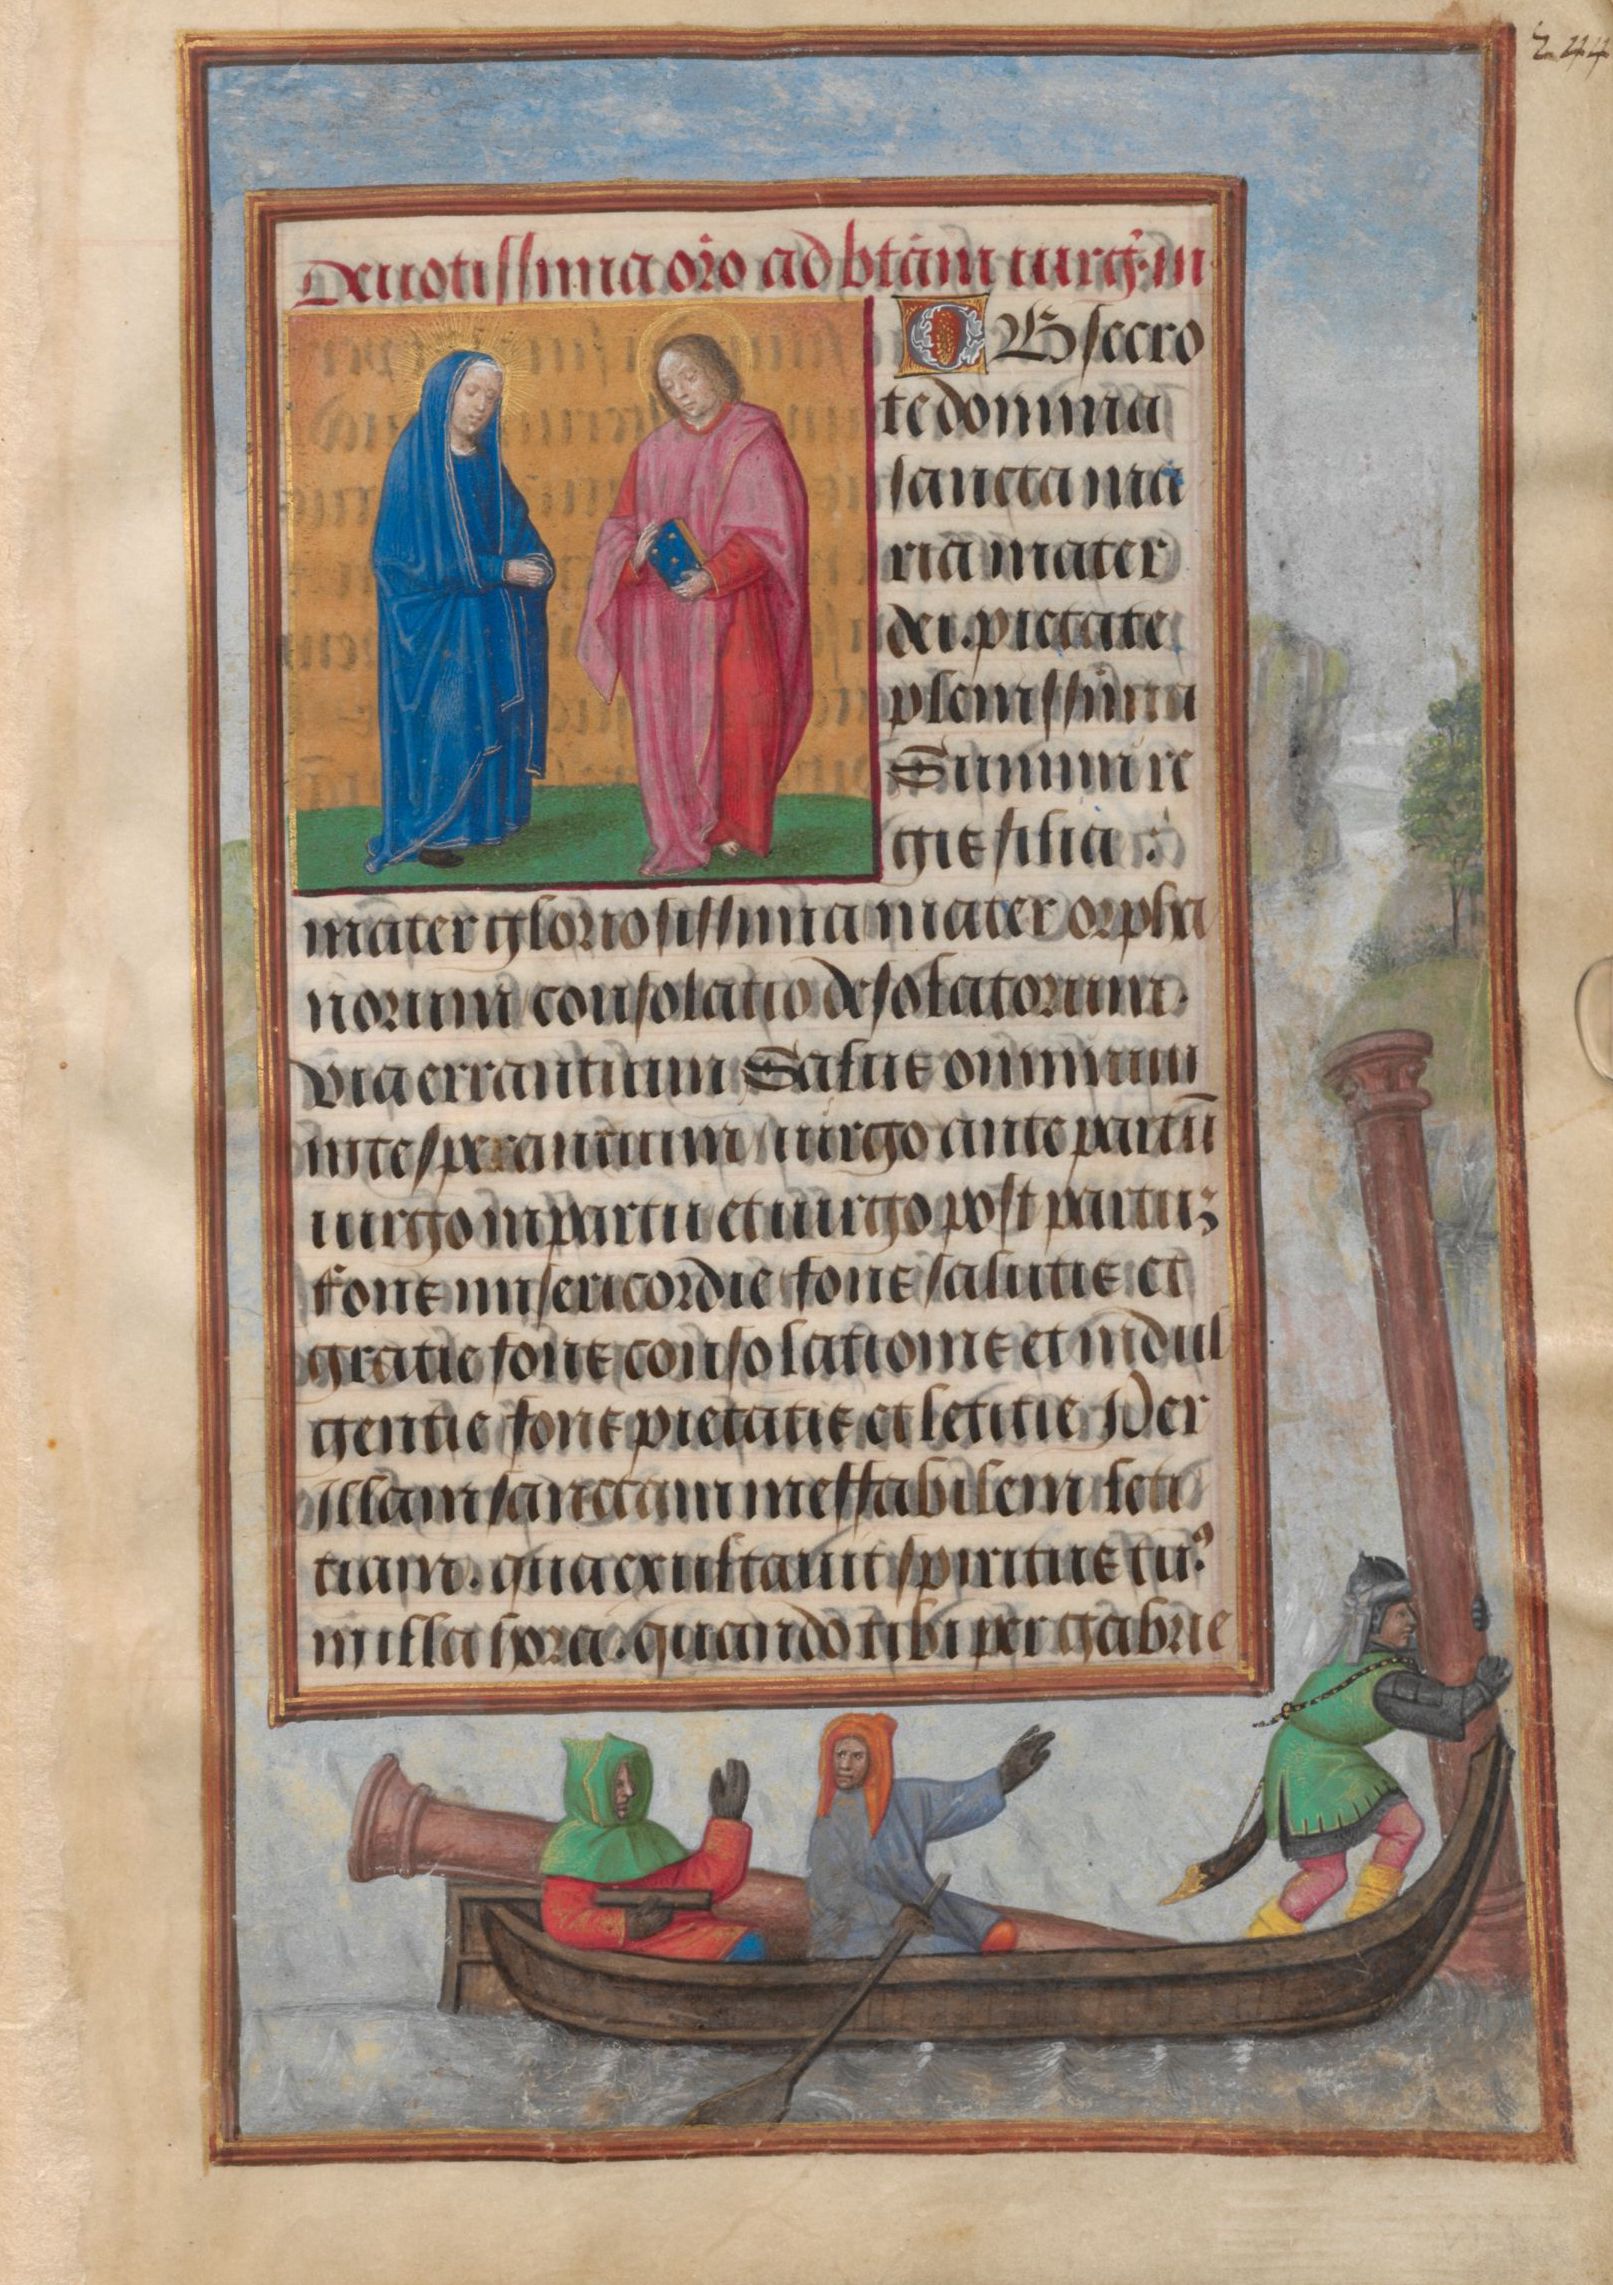 244
Deuotissima oro ad btam uirg. m
OBsecro
te domina
sancta ma
ria mater
dei. pietate
plenissima
Summi re
gis filia :
mater gloriosissima mater orpha
norum consolatio desolatorum.
via errantium Salus omnium
in te sperantium uirgo ante partū
uirgo in partu et uirgo post partu3
fons misericordie fons salutis et
gratie fons consolationis et indul
gentie fons pietatis et letitie Per
illam sanctam ineffabilem leti
tiam. qua exultauit spiritus tuꝰ
in illa hora. quando tibi per gabrie